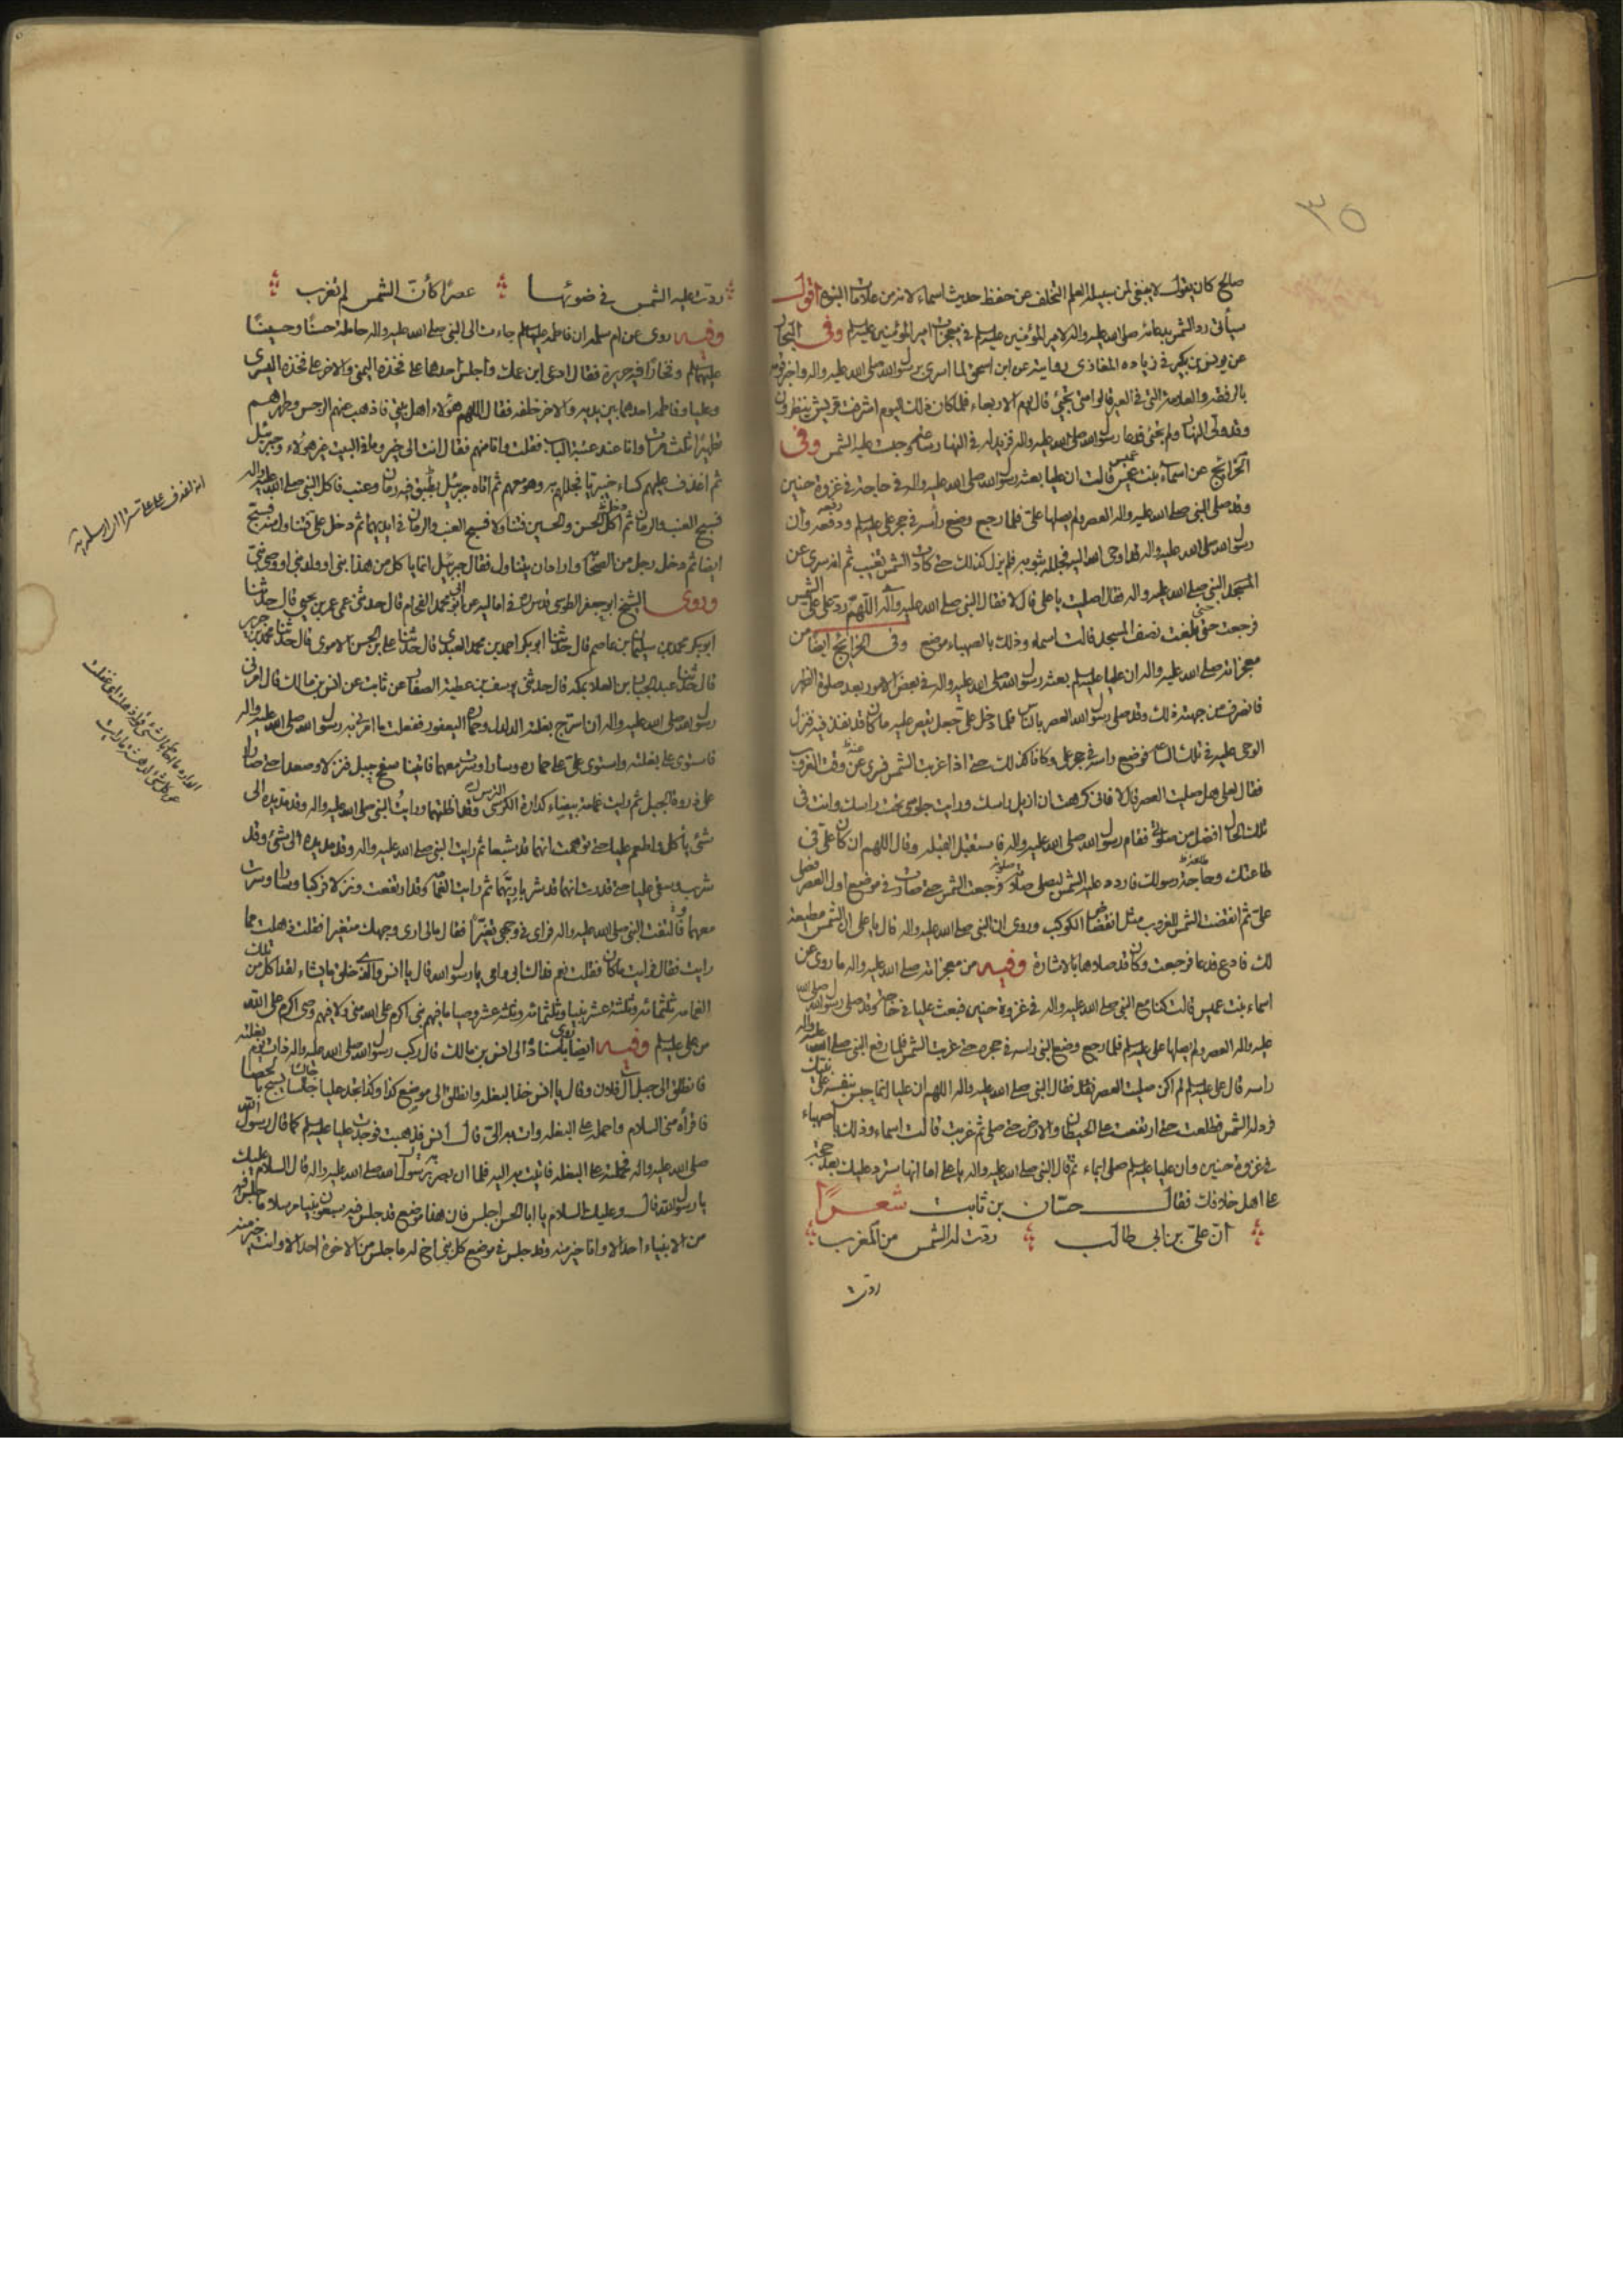 ٣٥
صالح كان يقول لا ينبغي لمن سبيله العلم التخلف عن حفظ حديث اسماء لانه من علامات النبوة اقول
سيأتى رد الشمس بدعائه صلى الله عليه واله لامير المؤمنين عليه السلم فى معجزات امير المؤمنين عليه السلم وفى البحار
عن يونس بن بكير فى زياده المغازى روايته عن ابن اسحق لما اسرى برسول الله صلى الله عليه واله واخبر قومه
بالرفقة والعلامة التى فى العير قالوا متى تجئ قال يوم الاربعاء فلما كان ذلك اليوم اشرفت قريش ينظرون
وقد ولى النهار ولم تجئ فدعا رسول الله صلى الله عليه واله فزيد له فى النهار ساعة وحبست عليه الشمس وفى
الخرائج عن اسماء بنت عميس قالت ان عليا بعثه رسول الله صلى الله عليه واله فى حاجة فى غزوة حنين
وقد صلى النبى صلى الله عليه واله العصر ولم يصلها على فلما رجع وضع رأسه فى حجر على عليه السلم ودفعه وان
رسول الله صلى الله عليه واله قد اوحى الله اليه فجلله بثوبه فلم يزل كذلك حتى كادت الشمس تغيب ثم انه سرى عن
النبى صلى الله عليه واله فقال اصليت يا على قال لا فقال النبى صلى الله عليه واله اللهم رد على على الشمس
فرجعت حتى بلغت نصف المسجد قالت اسماء وذلك بالصهباء موضع وفى الخرائج ايضا من
معجزاته صلى الله عليه واله ان عليا عليه السلم بعثه رسول الله صلى الله عليه واله فى بعض الامور بعد صلوة الظهر
فانصرف من جهته تلك وقد صلى رسول الله العصر بالناس فلما دخل على جعل يقص عليه ما كان قد نفذ فيه فنزل
الوحى عليه فى تلك الساعة فوضع راسه فى حجر على وكانا كذلك حتى اذا غربت الشمس فسرى عنه وقت الغروب
فقال لعلى هل صليت العصر قال لا فانى كرهت ان ازيل راسك ورايت جلوسى تحت راسك وانت فى
تلك الحال افضل من صلوتى فقام رسول الله صلى الله عليه واله فاستقبل القبله وقال اللهم ان كان على فى
طاعتك وحاجة رسولك فاردد عليه الشمس ليصلى صلوته فرجعت الشمس حتى صارت فى موضع اول العصر فصلى
على ثم انقضت الشمس للغروب مثل انقضاض الكوكب وروى ان النبى صلى الله عليه واله قال يا على ان الشمس مطيعة
لك فادع فدعا فرجعت وكان قد صلاها بالاشارة وفيه من معجزاته صلى الله عليه واله ما روى عن
اسماء بنت عميس قالت كنا مع النبى صلى الله عليه واله فى غزوة حنين فبعث عليا فى حاجة وقد صلى رسول الله صلى الله
عليه واله العصر ولم يصلها على عليه السلم فلما رجع وضع النبى راسه فى حجره حتى غربت الشمس فلما رفع النبى صلى الله عليه واله
راسه قال على عليه السلم لم اكن صليت العصر فقال النبى صلى الله عليه واله اللهم ان عليا انما حبس نفسه على نبيك
فرد له الشمس فطلعت حتى ارتفعت على الحيطان والارض حتى صلى ثم غربت قالت اسماء وذلك بالصهباء
فى غزوة حنين وان عليا عليه السلم صلى ايماء ثم قال النبى صلى الله عليه واله يا على اما انها سترد عليك بعدى حجة
على اهل خلافك فقال حسّان بن ثابت شعرًا
انّ علىّ بن ابى طالب ردّت له الشمس من المغرب
ردّت
ردّت عليه الشمس فى ضوئها عصرًا كأنّ الشمس لم تغرب
وفيه روى عن ام سلمه ان فاطمه عليها السلم جاءت الى النبى صلى الله عليه واله حاملة حسنًا وحسينًا
عليهما السلم وفخارًا فيه حريرة فقال ادعى ابن عمك واجلس احدهما على فخذه اليمنى والاخر على فخذه اليسرى
وعليا وفاطمه احدهما بين يديه والاخر خلفه فقال اللهم هؤلاء اهل بيتى فاذهب عنهم الرجس وطهرهم
تطهيرًا ثلث مرات وانا عند عتبة الباب فقلت وانا منهم فقال انت الى خير وما فى البيت غير هؤلاء وجبرئيل
ثم اغدف عليهم كساء خيبريا فجللهم به وهو معهم ثم اتاه جبرئيل بطبق فيه رمان وعنب فاكل النبى صلى الله عليه واله
فسبح العنب والرمان ثم اكل الحسن والحسين فتناولا فسبح العنب والرمان فى ايديهما ثم دخل على فتناول منه فسبح
ايضا ثم دخل رجل من الصحابة واراد ان يتناول فقال جبرئيل انما ياكل من هذا نبى او ولد نبى او وصى نبى
وروى الشيخ ابو جعفر الطوسى قدس سره فى اماليه عن ابى محمد الفحام قال حدثنى عمى عمر بن يحيى قال حدثنا
ابو بكر محمد بن سليمان بن عاصم قال حدثنا ابو بكر احمد بن محمد العبدى قال حدثنا على بن الحسن الاموى قال حدثنا محمد بن جرير
قال حدثنا عبد الجبار بن العلاء بمكه قال حدثنى يوسف بن عطية الصفار عن ثابت عن انس بن مالك قال امرنى
رسول الله صلى الله عليه واله ان اسرج بغلته الدلدل وحماره اليعفور ففعلت ما امرنى به رسول الله صلى الله عليه واله
فاستوى على بغلته واستوى على على حماره وسارا وسرت معهما فاتينا سفح جبل فنزلا وصعدا حتى صارا
على ذروة الجبل ثم رايت غمامة بيضاء كدارة الكرسى وقد اظلتهما ورايت النبى صلى الله عليه واله وقد مد يده الى
شئ ياكل واطعم عليا حتى توهمت انهما قد شبعا ثم رايت النبى صلى الله عليه واله وقد مد يده الى شئ وقد
شرب وسقى عليا حتى قدرت انهما قد شربا ريهما ثم رايت الغمامة وقد ارتفعت ونزلا فركبا وسارا وسرت
معهما فالتفت النبى صلى الله عليه واله فراى فى وجهى تغيرًا فقال مالى ارى وجهك متغيرا فقلت ذهلت مما
رايت فقال فرايت ما كان فقلت نعم فداك ابى وامى يا رسول الله قال يا انس والذى خلق ما يشاء لقد اكل من تلك
الغمامة ثلثمائه وثلثة عشر نبيا وثلثمائه وثلثة عشر وصيا ما فيهم نبى اكرم على الله منى ولا فيهم وصى اكرم على الله
من على عليه السلم وفيه ايضا روى باسناده الى انس بن مالك قال ركب رسول الله صلى الله عليه واله ذات يوم بغلته
فانطلق الى جبل آل فلان وقال يا انس خذ البغله وانطلق الى موضع كذا وكذا تجد عليا جالسا يسبح بالحصا
فاقرأه منى السلام واحمله على البغله وات به الى قال انس فذهبت فوجدت عليا عليه السلم كما قال رسول الله
صلى الله عليه واله فحملته على البغله فاتيت به اليه فلما ان بصر به رسول الله صلى الله عليه واله قال السلام عليك
يا رسول الله قال وعليك السلام يا ابا الحسن اجلس فان هذا موضع قد جلس فيه سبعون نبيا مرسلا ما جلس فيه
من الانبياء احد الا وانا خير منه وقد جلس فى موضع كل نبى اخ له ما جلس من الاخوة احد الا وانت خير منه